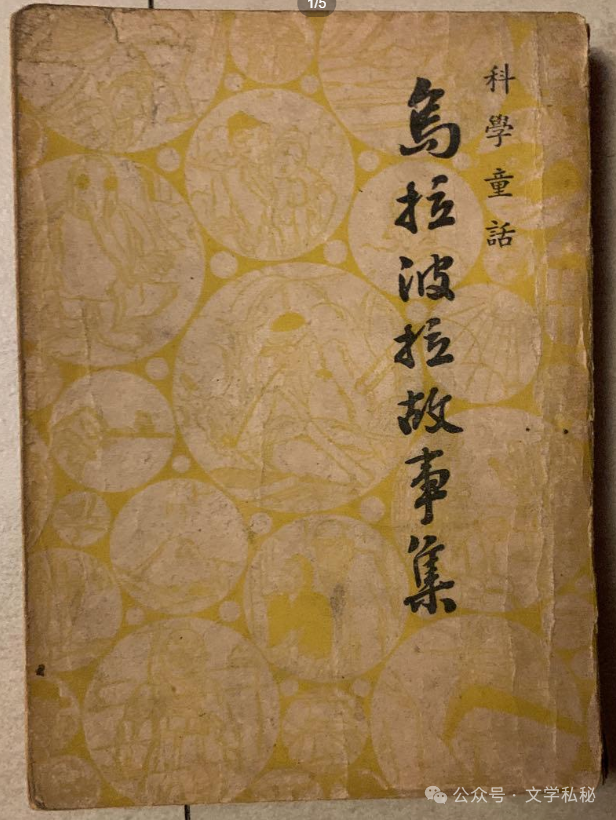 1/5
科學童話
烏拉波拉故事集
公众号·文学私秘